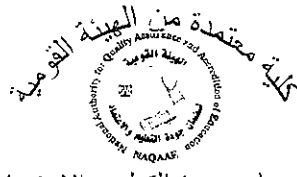 كلية معتمدة من الهيئة القومية
National Authority for Quality Assurance and Accreditation of Education
الهيئة القومية
لضمان جودة التعليم والاعتماد
NAQAAE